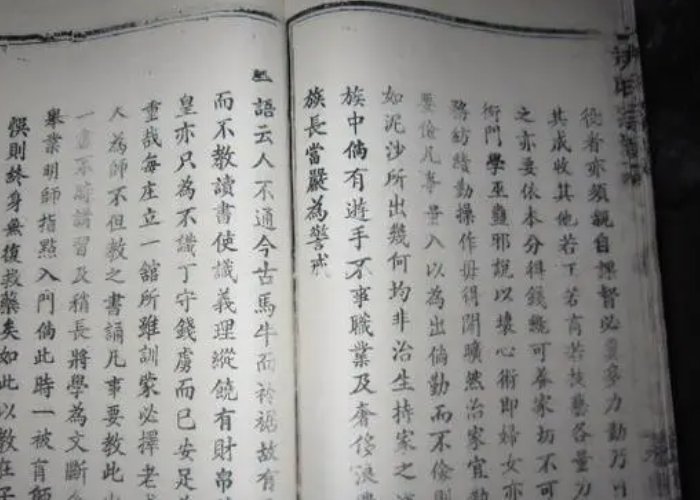 役者亦須親自課督必要多力勤乃
其成收其他若工若商若技藝各量力
之亦要依本分得錢纔可养家切不可
術門學巫蠱邪說以壞心術即婦女亦
務紡績勤操作毋得閒曠然治家宜
要儉凡事量入以為出倘勤而不儉則
如泥沙所出幾何均非治生持家之
族中倘有遊手不事職業及奢侈浪
族長當嚴為警戒
語云人不通今古馬牛而衿裾故有
而不教讀書使識義理縱饒有財帛
皇亦只為不識丁守錢虜而已安足
重哉每庄立一舘所雖訓蒙必擇老
人為師不但教之書誦凡事要教此
一意不時講習及稍長將學為文斷
舉業明師指點入門倘此時一被盲師
悞則終身無復救藥矣如此以教在